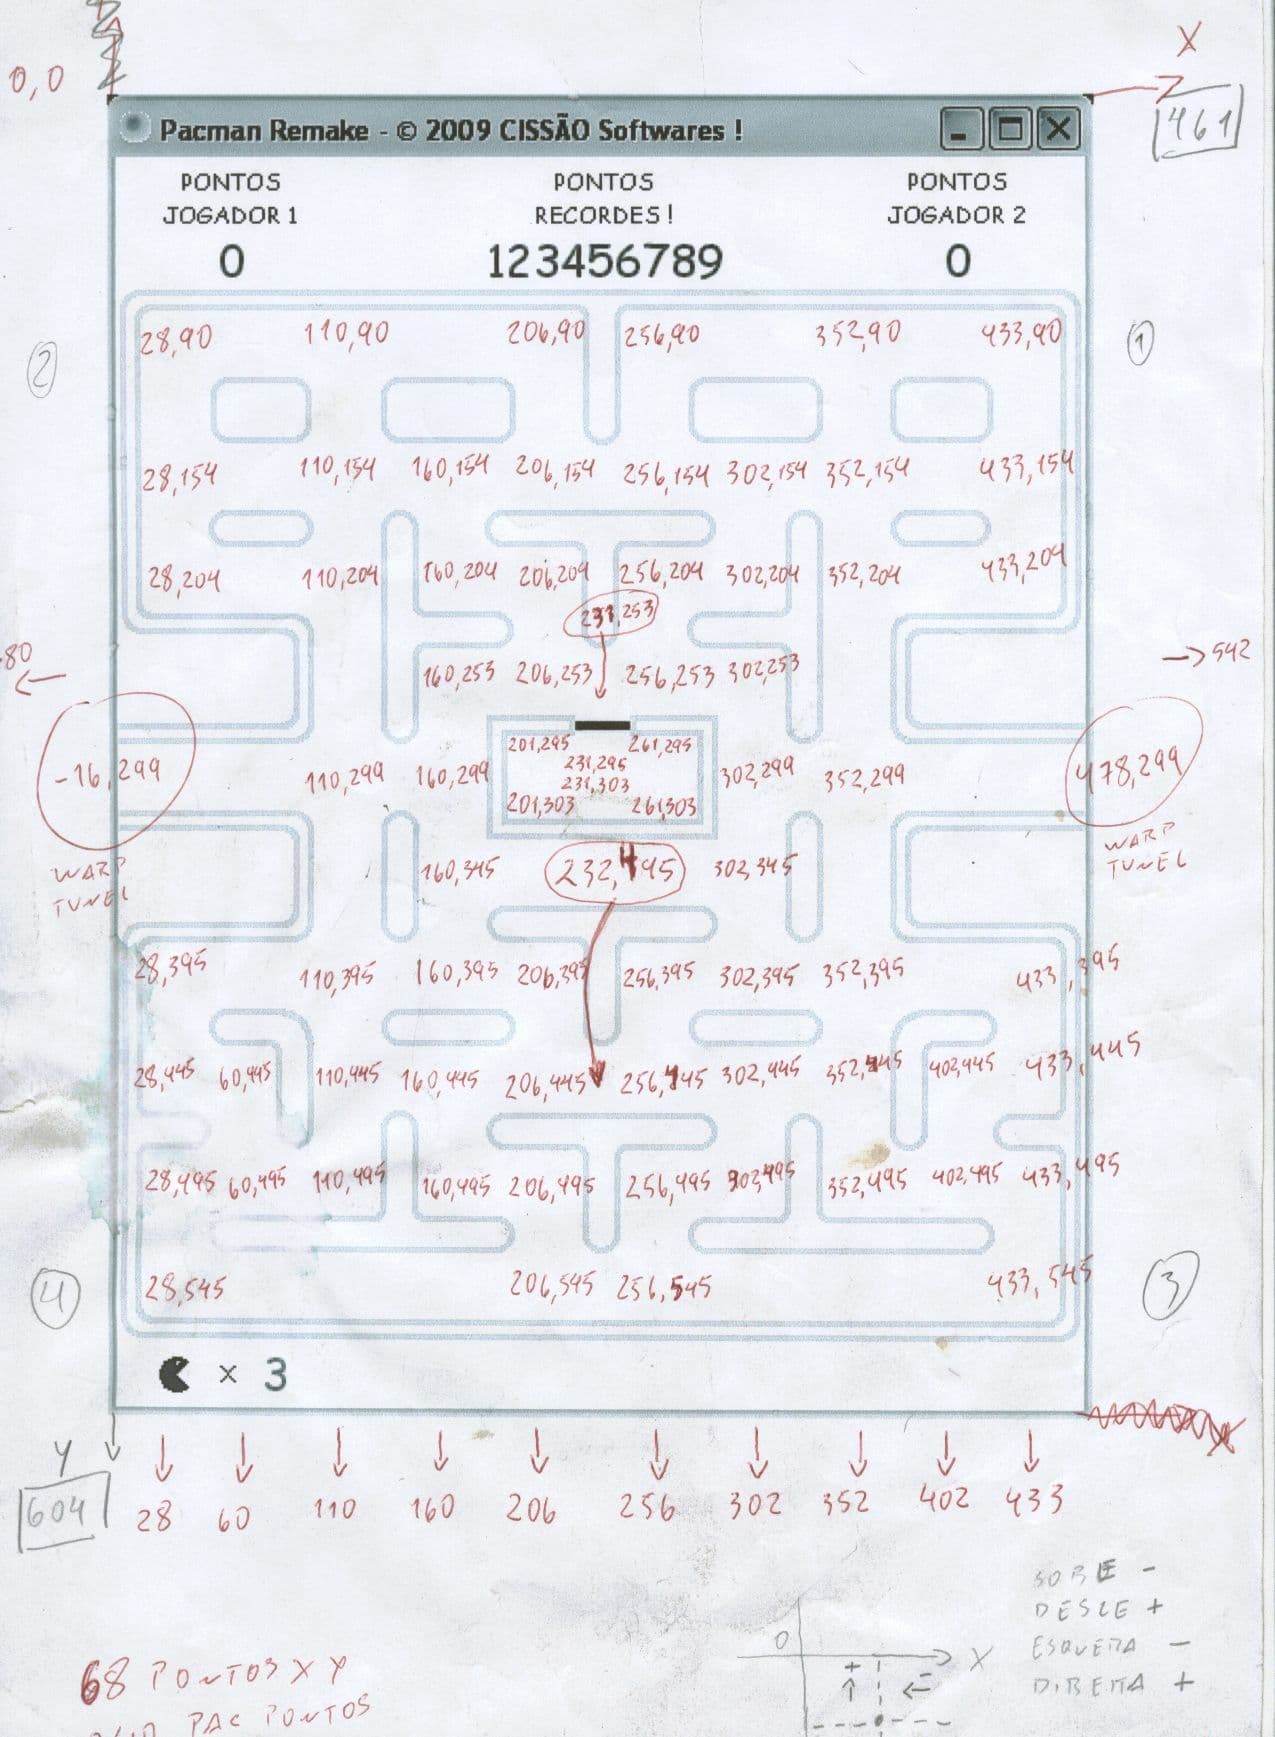 0,0
X
461
Pacman Remake - © 2009 CISSÃO Softwares !
PONTOS PONTOS PONTOS
JOGADOR 1 RECORDES ! JOGADOR 2
0 123456789 0
28,90 110,90 206,90 256,90 352,90 433,90
2 1
28,154 110,154 160,154 206,154 256,154 302,154 352,154 433,154
28,204 110,204 160,204 206,204 256,204 302,204 352,204 433,204
231,253
80 → 542
160,253 206,253 256,253 302,253
201,295 261,295
231,295
-16,299 110,299 160,299 231,303 302,299 352,299 478,299
201,303 261,303
WARP TUNEL WARP TUNEL
160,345 232,495 302,345
28,395 110,395 160,395 206,395 256,395 302,395 352,395 433,395
28,445 60,445 110,445 160,445 206,445 256,445 302,445 352,445 402,445 433,445
28,495 60,495 110,495 160,495 206,495 256,495 302,495 352,495 402,495 433,495
4 3
28,545 206,545 256,545 433,545
× 3
Y
604
28 60 110 160 206 256 302 352 402 433
SOBE -
DESCE +
ESQUERDA -
DIREITA +
0 X
+ -
68 PONTOS X Y
PAC PONTOS